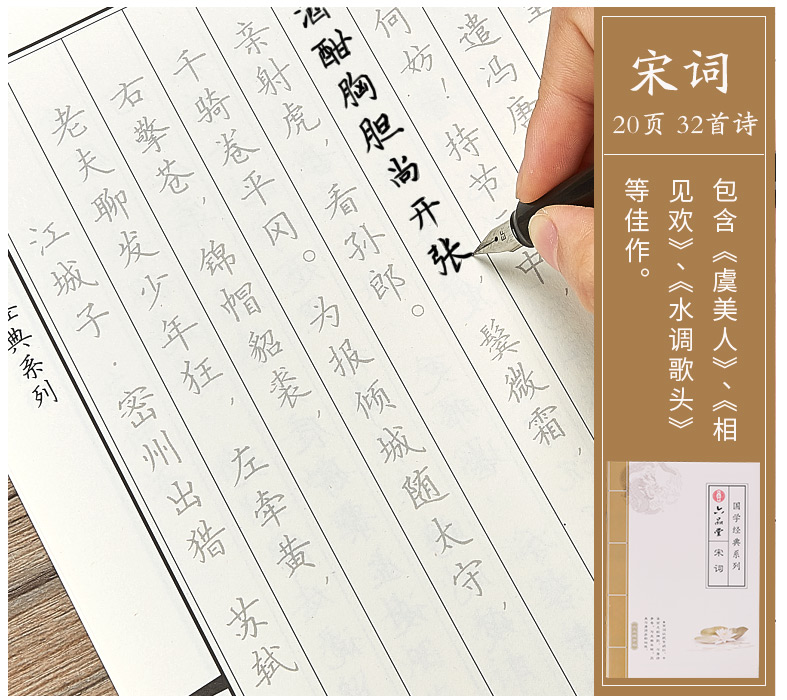 江城子·密州出猎 苏轼
老夫聊发少年狂,左牵黄,
右擎苍,锦帽貂裘,
千骑卷平冈。为报倾城随太守,
亲射虎,看孙郎。
酒酣胸胆尚开张,鬓微霜,
何妨!持节 中,
遣冯唐
典系列
宋词
20页 32首诗
包含《虞美人》、《相
见欢》、《水调歌头》
等佳作。
国学经典系列
六品堂 宋词